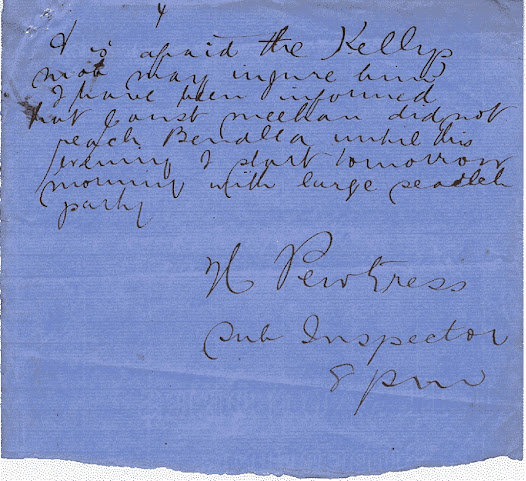 4
& is afraid the Kellys
mob may injure him
I have been informed
that Const meehan did not
reach Benalla until this
evening I start tomorrow
morning with large search
party
H Pewtress
Sub Inspector
8 pm